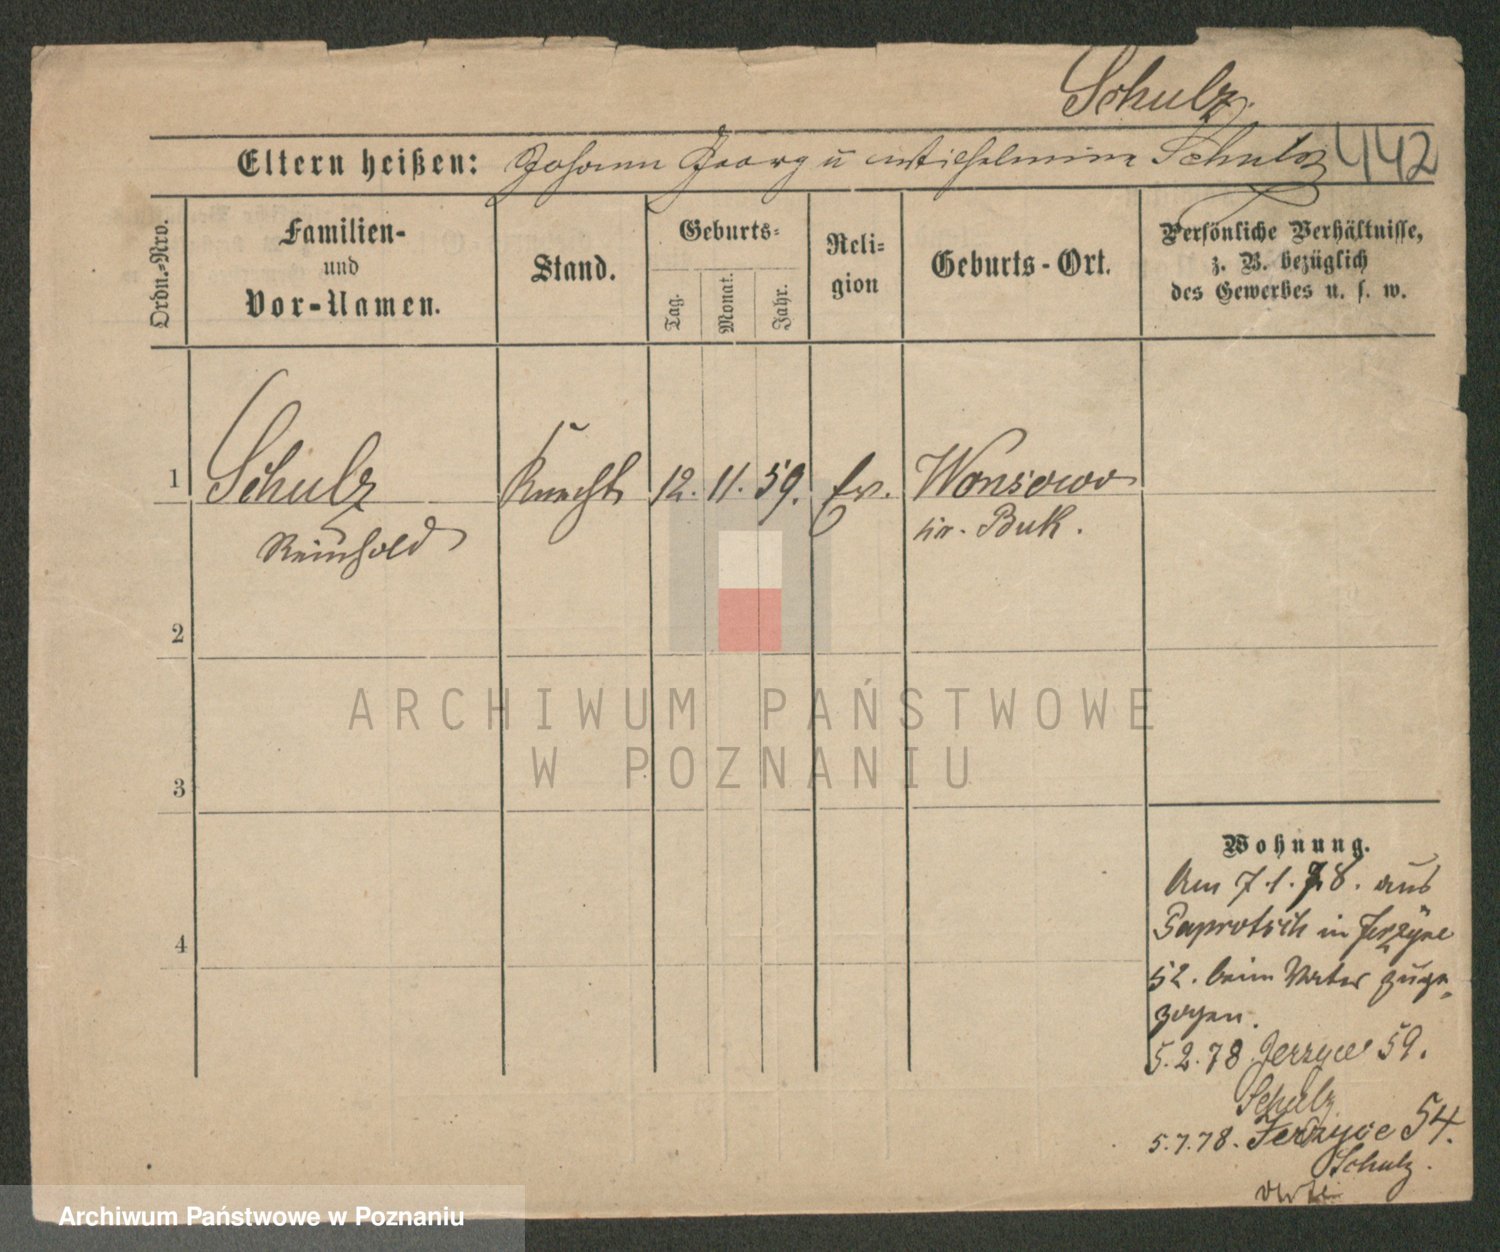 Schulz
Eltern heißen: Johann Georg u Wilhelmine Schulz 442
Ordn.-Nro.
Familien-
und
Vor-Namen.
Stand.
Geburts-
Tag.
Monat.
Jahr.
Reli-
gion
Geburts-Ort.
Persönliche Verhältnisse,
z. B. bezüglich
des Gewerbes u. s. w.
1 Schulz Knecht 12. 11. 59. Ev. Wonsowo
Reinhold Kr. Buk.
2
3
4
Wohnung.
Am 7.1.78. aus
Paprotsch in Jerzyce
52. beim Vater zuge-
zogen.
5.2.78 Jerzyce 59.
Schulz
5.7.78. Jerzyce 54.
Schulz.
ARCHIWUM PAŃSTWOWE
W POZNANIU
Archiwum Państwowe w Poznaniu